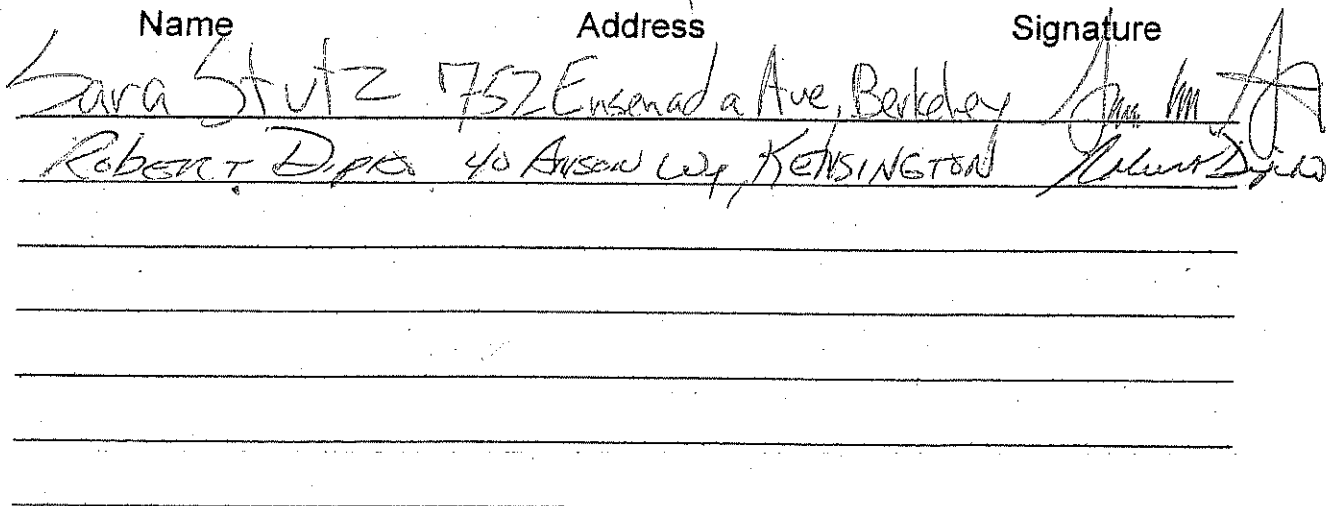 Name Address Signature
Sara Stutz 752 Ensenada Ave, Berkeley
Robert 40 Anson Wy, KENSINGTON Robert